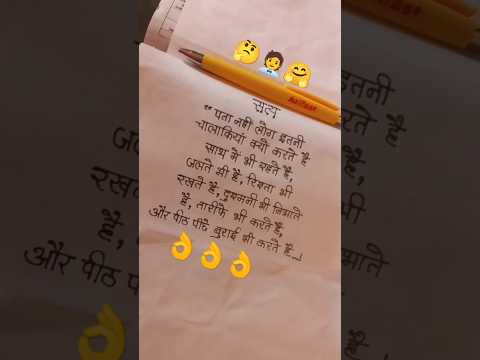 सत्य
"पता नहीं लोग इतनी
चालाकियाँ क्यों करते है
साथ में भी रहते है,
जलते भी है, रिश्ता भी
रखते है, दुश्मनी भी निभाते
है, तारीफे भी करते है,
और पीठ पीछे बुराई भी करते है...!